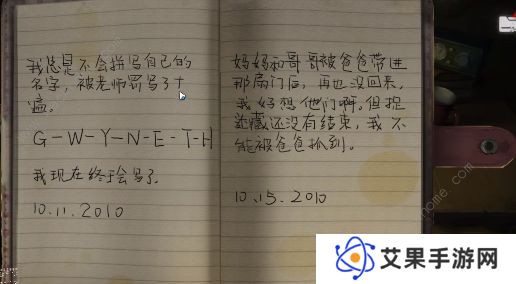 我总是不会拼写自己的
名字，被老师罚写了十
遍。
G-W-Y-N-E-T-H
我现在终于会写了。
10.11.2010
妈妈和哥哥被爸爸带进
那扇门后，再也没回来，
我好想他们啊。但捉
迷藏还没有结束，我不
能被爸爸抓到。
10.15.2010
艾果手游网